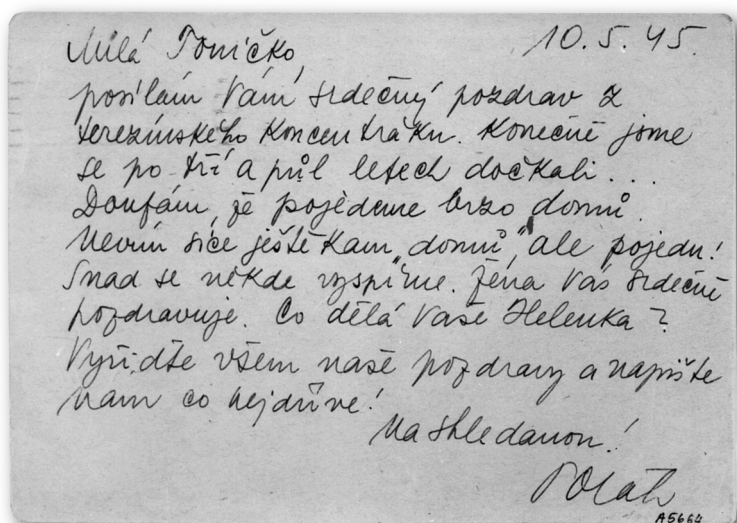 10.5.45.
Milá Toničko,
posílám Vám srdečný pozdrav z
terezínského koncentráku. Konečně jsme
se po tři a půl letech dočkali...
Doufám, že pojedeme brzo domů.
Nevím sice ještě kam „domů" ale pojedu!
Snad se někde vyspíme. Žena Vás srdečně
pozdravuje. Co dělá Vaše Helenka?
Vyřiďte všem naše pozdravy a napište
nám co nejdříve!
Na shledanou!
A5664